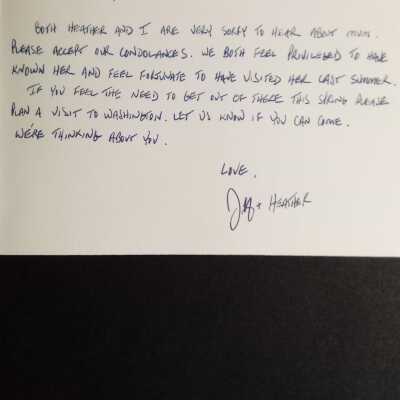 BOTH HEATHER AND I ARE VERY SORRY TO HEAR ABOUT MUM.
PLEASE ACCEPT OUR CONDOLANCES. WE BOTH FEEL PRIVILEGED TO HAVE
KNOWN HER AND FEEL FORTUNATE TO HAVE VISITED HER LAST SUMMER.
IF YOU FEEL THE NEED TO GET OUT OF THERE THIS SPRING PLEASE
PLAN A VISIT TO WASHINGTON. LET US KNOW IF YOU CAN COME.
WE'RE THINKING ABOUT YOU.
LOVE,
+ HEATHER